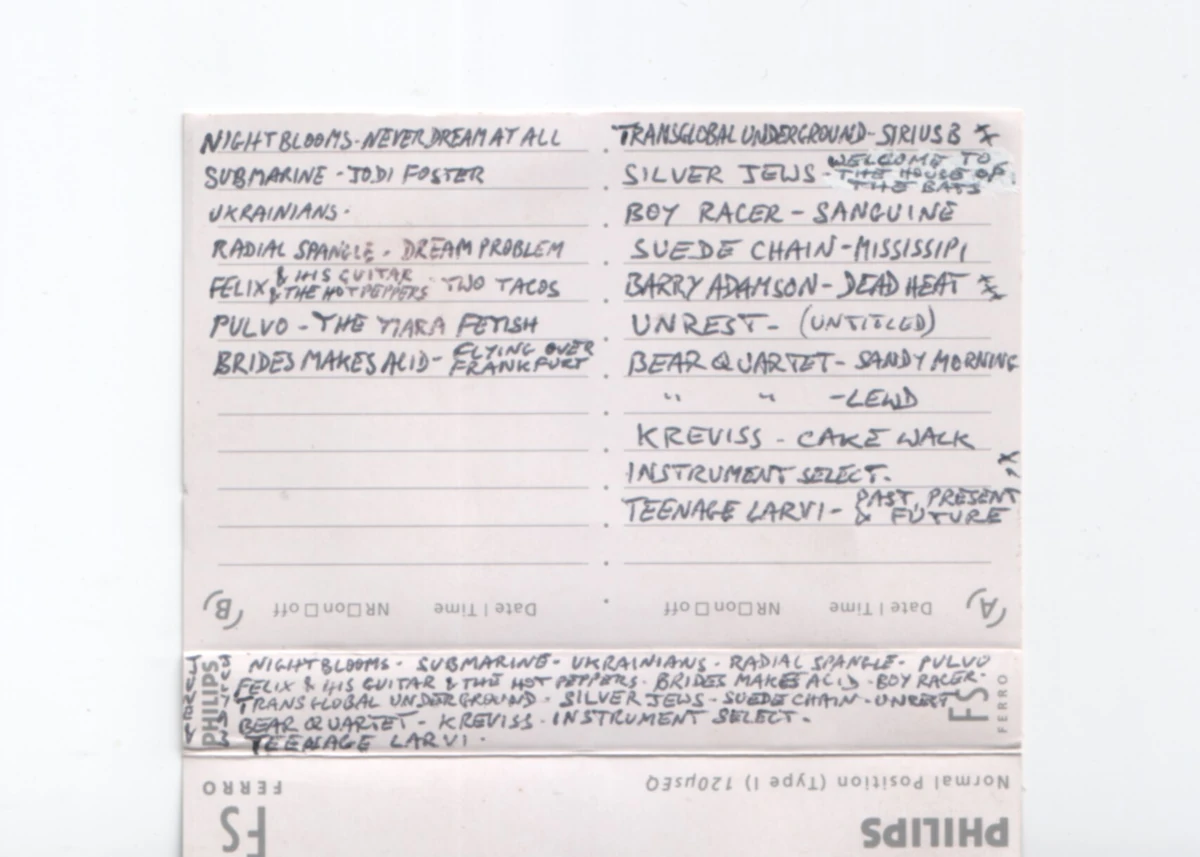 NIGHTBLOOMS - NEVER DREAM AT ALL
SUBMARINE - JODI FOSTER
UKRAINIANS -
RADIAL SPANGLE - DREAM PROBLEM
FELIX & HIS GUITAR & THE HOT PEPPERS - TWO TACOS
PULVO - THE TIARA FETISH
BRIDES MAKES ACID - FLYING OVER FRANKFURT
TRANSGLOBAL UNDERGROUND - SIRIUS B
SILVER JEWS - WELCOME TO THE HOUSE OF THE BATS
BOY RACER - SANGUINE
SUEDE CHAIN - MISSISSIPI
BARRY ADAMSON - DEAD HEAT
UNREST - (UNTITLED)
BEAR QUARTET - SANDY MORNING
" " - LEWD
KREVISS - CAKE WALK
INSTRUMENT SELECT.
TEENAGE LARVI - PAST, PRESENT & FUTURE
B NR on off Date | Time
A NR on off Date | Time
PHILIPS
NIGHTBLOOMS - SUBMARINE - UKRAINIANS - RADIAL SPANGLE - PULVO
FELIX & HIS GUITAR & THE HOT PEPPERS - BRIDES MAKES ACID - BOY RACER -
TRANSGLOBAL UNDERGROUND - SILVER JEWS - SUEDE CHAIN - UNREST
BEAR QUARTET - KREVISS - INSTRUMENT SELECT -
TEENAGE LARVI -
FS FERRO
FS FERRO
Normal Position (Type I) 120µsEQ
PHILIPS